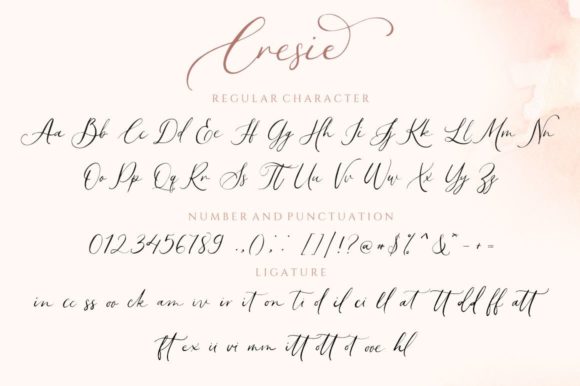 Cresie
REGULAR CHARACTER
Aa Bb Cc Dd Ee Ff Gg Hh Ii Jj Kk Ll Mm Nn
Oo Pp Qq Rr Ss Tt Uu Vv Ww Xx Yy Zz
NUMBER AND PUNCTUATION
0123456789 .,();: []|!?@#$%^&*-+=
LIGATURE
in cc ss oo ck am iv ir it on ti il ci ll at tt dd ff att
ft ex ii vi mm itt ott ot ooe hl